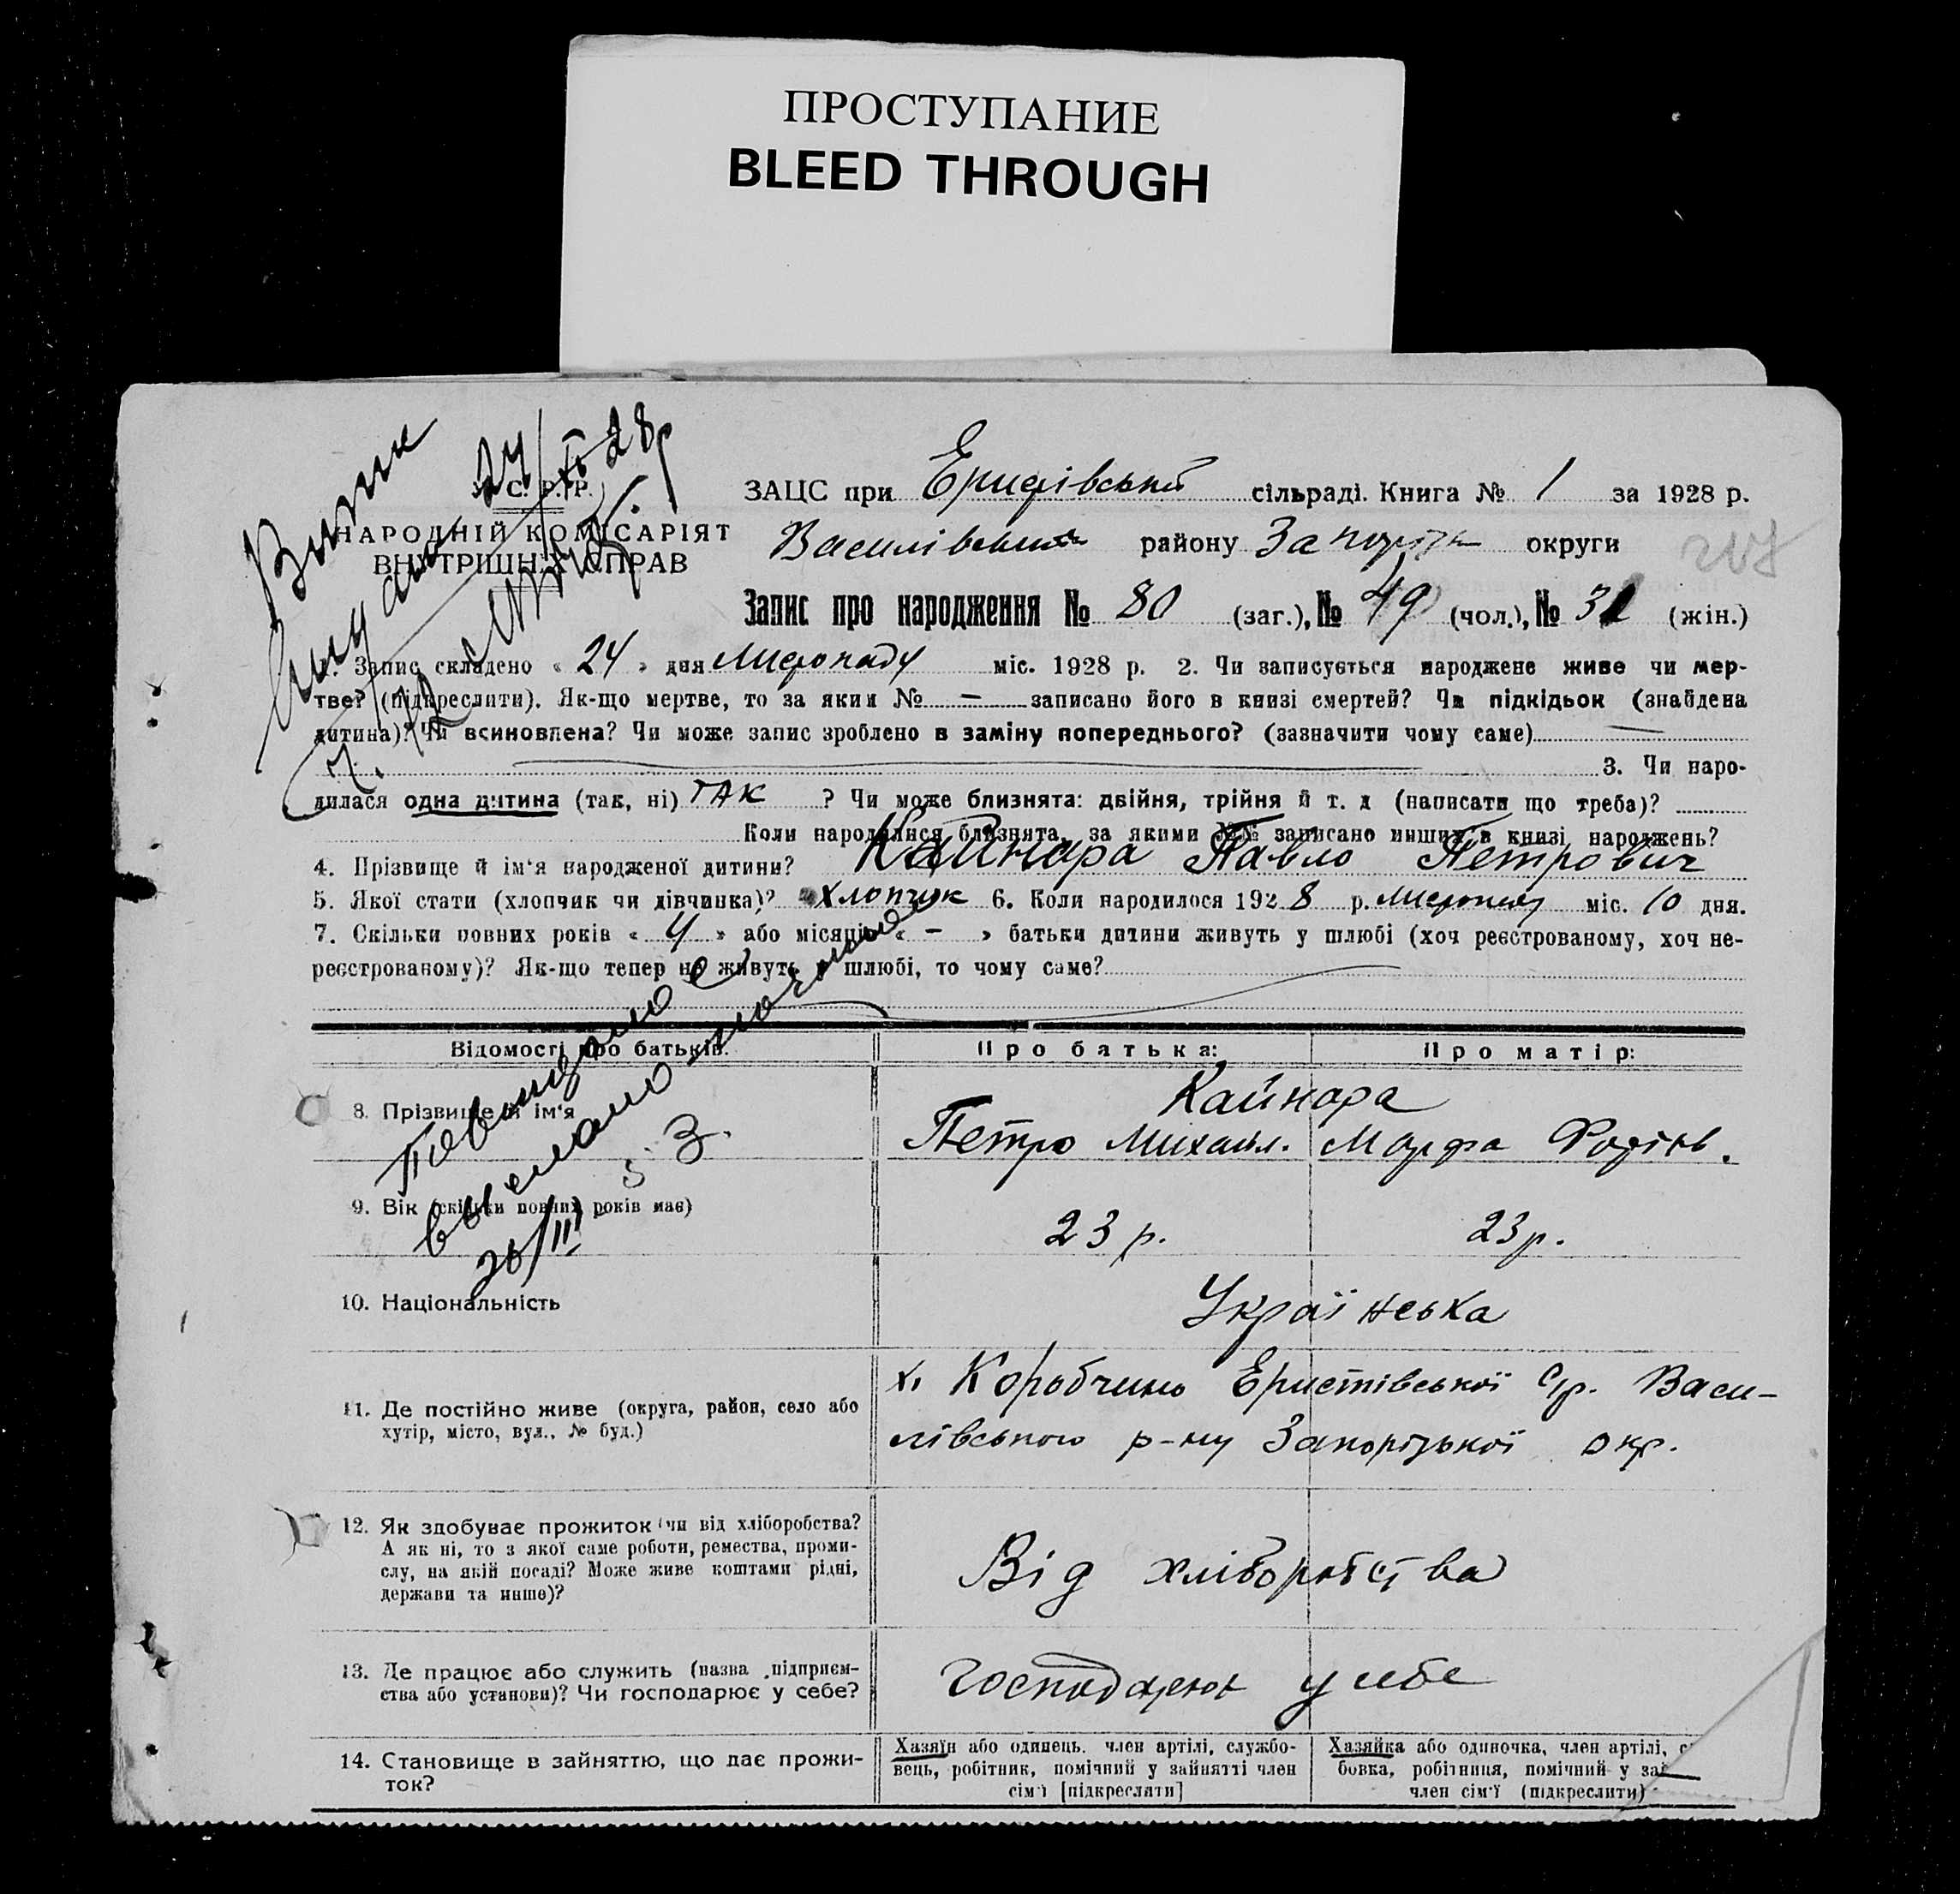 ПРОСТУПАНИЕ
BLEED THROUGH
У. С. Р. Р.
НАРОДНІЙ КОМІСАРІЯТ
ВНУТРІШНІХ СПРАВ
Витяг
видано 24/XI 28р
ЗАЦС при Еристівській сільраді. Книга № 1 за 1928 р.
Василівський району Запоріж округи
Запис про народження № 80 (заг.), № 49 (чол.), № 31 (жін.)
1. Запис складено « 24 » дня Листопаду міс. 1928 р. 2. Чи записується народжене живе чи мер-
тве? (підкреслити). Як-що мертве, то за яким № — записано його в книзі смертей? Чи підкідьок (знайдена
дитина)? Чи всиновлена? Чи може запис зроблено в заміну попереднього? (зазначити чому саме) —
3. Чи наро-
дилася одна дитина (так, ні) ТАК ? Чи може близнята: двійня, трійня й т. д (написати що треба)?
Коли народилися близнята, за якими №№ записано инших в книзі народжень?
4. Прізвище й ім'я народженої дитини? Кайнара Павло Петрович
5. Якої стати (хлопчик чи дівчинка)? хлопчик 6. Коли народилося 1928 р. Листопаду міс. 10 дня.
7. Скільки повних років « 4 » або місяців « — » батьки дитини живуть у шлюбі (хоч реєстрованому, хоч не-
реєстрованому)? Як-що тепер не живуть у шлюбі, то чому саме?
Відомості про батьків. Про батька: Про матір:
8. Прізвище й ім'я Кайнара
Петро Михайл. Марфа Федіїв.
Повторное
выслано
26/III
9. Вік (скільки повних років має) 23 р. 23 р.
10. Національність Українська
11. Де постійно живе (округа, район, село або
хутір, місто, вул., № буд.)
х. Коробчино Еристівської с/р. Васи-
лівського р-ну Запорізької окр.
12. Як здобуває прожиток чи від хліборобства?
А як ні, то з якої саме роботи, ремества, проми-
слу, на якій посаді? Може живе коштами рідні,
держави та инше)?
Від хліборобства
13. Де працює або служить (назва підприєм-
ства або установи)? Чи господарює у себе?
господарюют у себе
14. Становище в зайняттю, що дає прожи-
ток?
Хазяїн або одинець. член артілі, службо-
вець, робітник, помічний у зайнятті член
сім'ї [підкреслити]
Хазяйка або одиночка, член артілі,
бовка, робітниця, помічний у зай
член сім'ї (підкреслити)